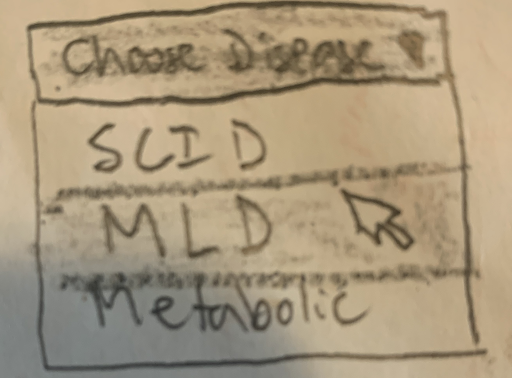 Choose Disease
SCID
MLD
Metabolic